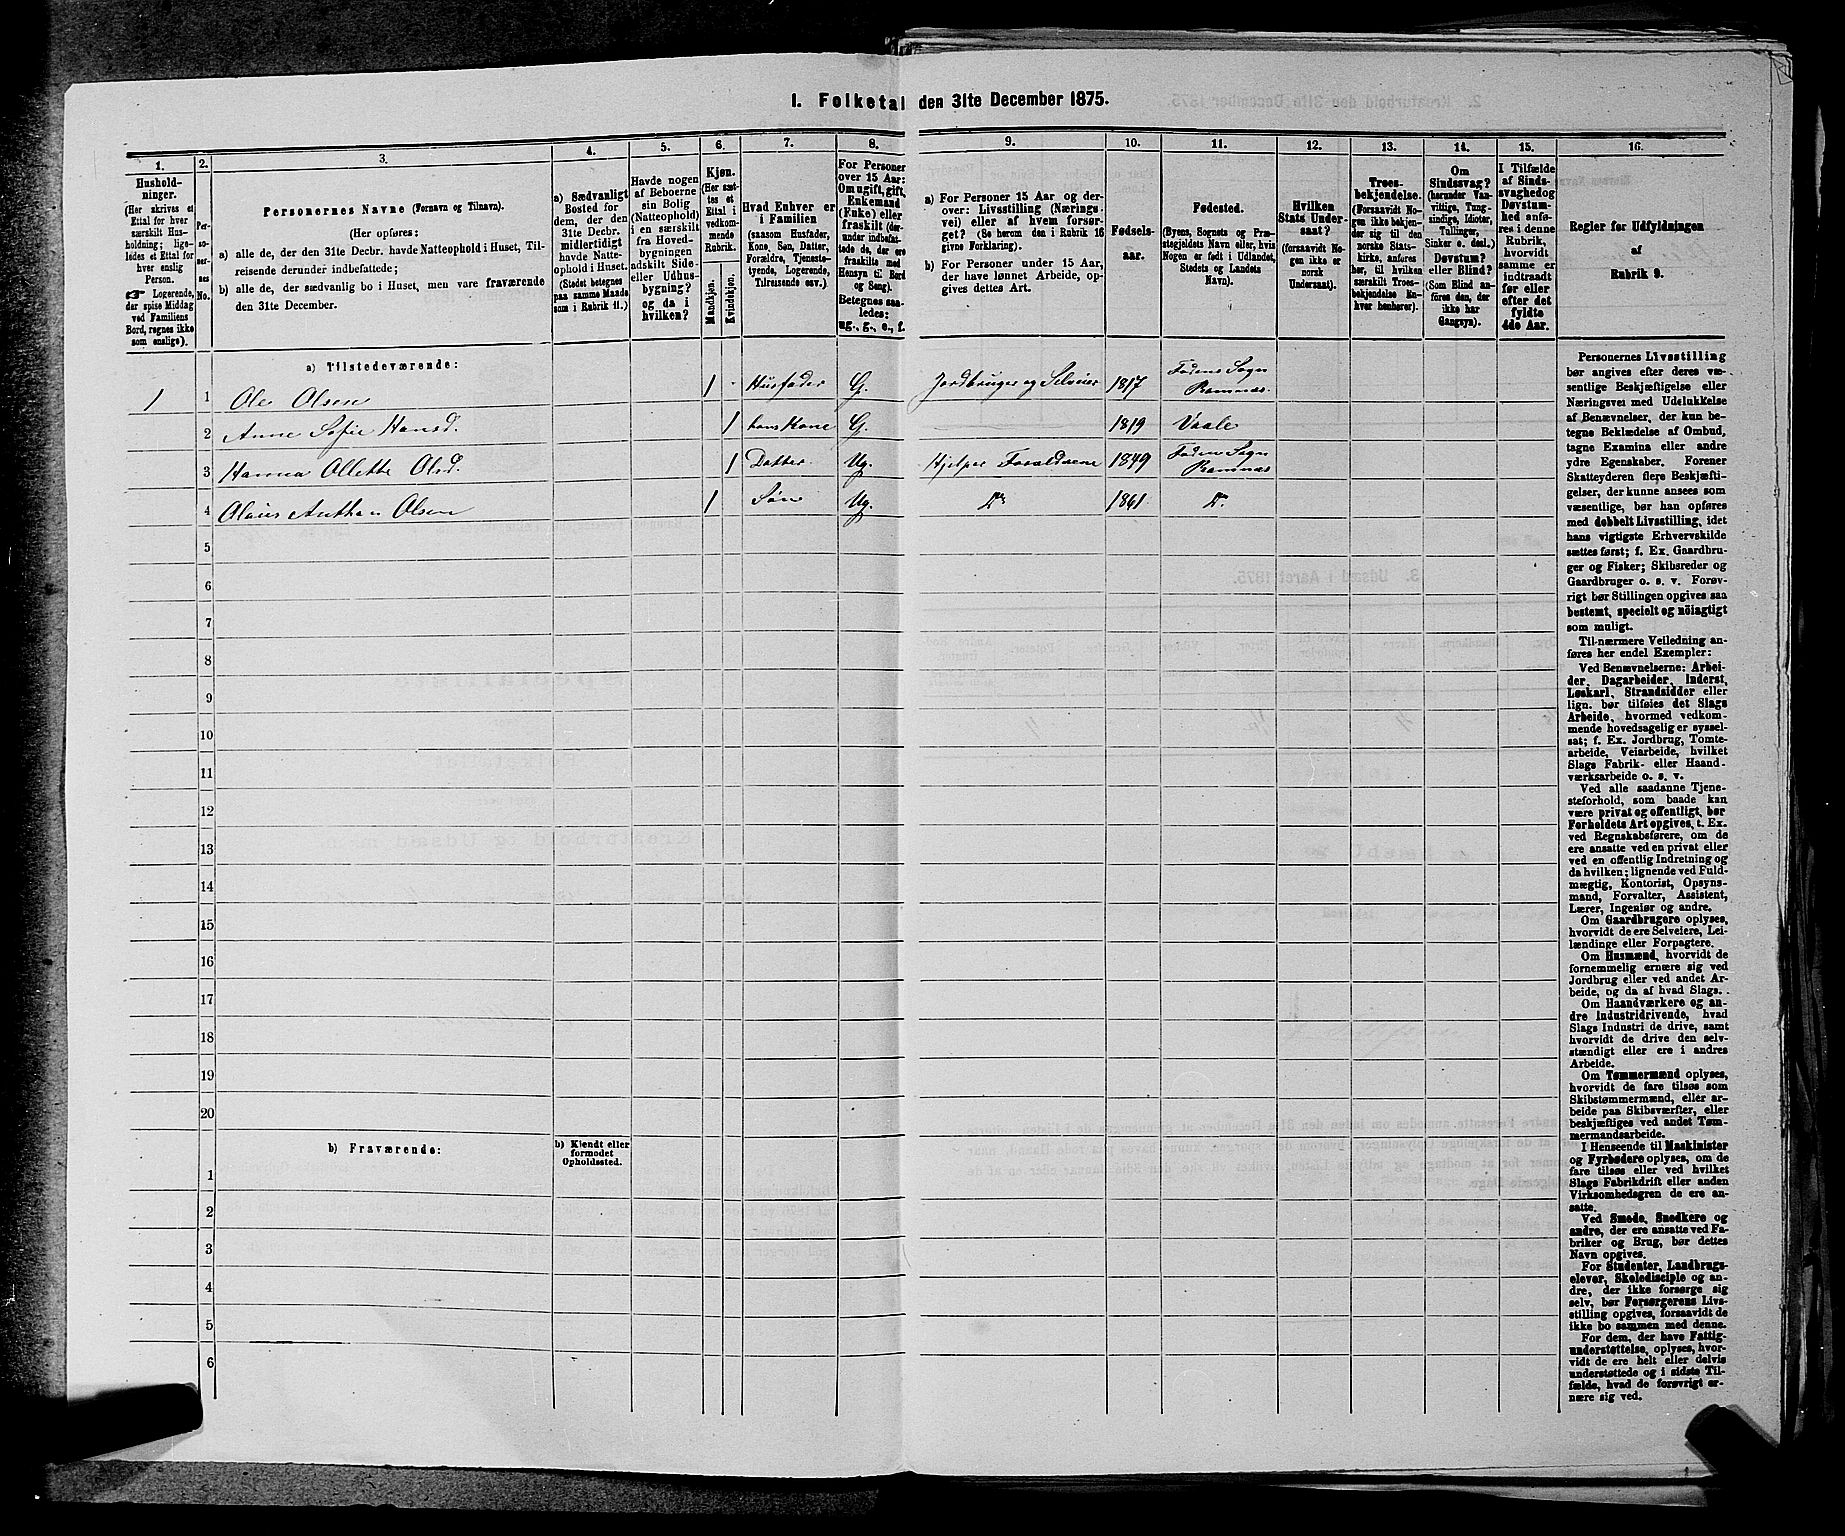 1. Folketal den 31te December 1875.
1.
Hushold-
ninger.
(Her skrives et
Ettal for hver
særskilt Hus-
holdning; lige-
ledes et Ettal for
hver enslig
Person.
☞ Logerende,
der spise Middag
ved Familiens
Bord, regnes ikke
som enslige).
2.
Per-
so-
ner-
nes
No.
3.
Personernes Navne (Fornavn og Tilnavn).
(Her opføres:
a) alle de, der den 31te Decbr. havde Natteophold i Huset, Til-
reisende derunder indbefattede;
b) alle de, der sædvanlig bo i Huset, men vare fraværende
den 31te December.
4.
a) Sædvanligt
Bosted for
dem, der den
31te Decbr.
midlertidigt
havde Natte-
ophold i Huset.
(Stedet betegnes
paa samme Maade
som i Rubrik 11.)
5.
Havde nogen
af Beboerne
sin Bolig
(Natteophold)
i en særskilt
fra Hoved-
bygningen
adskilt Side-
eller Udhus-
bygning?
og da i
hvilken?
6.
Kjøn.
(Her sæt-
tes et
Ettal i
vedkom-
mende
Rubrik.
Mandkjøn.
Kvindekjøn.
7.
Hvad Enhver er
i Familien
(saasom Husfader,
Kone, Søn, Datter,
Forældre, Tjeneste-
tyende, Logerende,
Tilreisende osv.)
8.
For Personer
over 15 Aar:
Om ugift, gift,
Enkemand
(Enke) eller
fraskilt (der-
under indbefat-
tede de, der ere
fraskilte med
Hensyn til Bord
og Seng).
Betegnes saa-
ledes:
ug., g., e., f.
9.
a) For Personer 15 Aar og der-
over: Livsstilling (Nærings-
vei) eller af hvem forsør-
get? (Se herom den i Rubrik 16
givne Forklaring).
b) For Personer under 15 Aar,
der have lønnet Arbeide, op-
gives dettes Art.
10.
Fødsels-
aar.
11.
Fødested.
(Byens, Sognets og Præ-
stegjeldets Navn eller, hvis
Nogen er født i Udlandet,
Stedets og Landets
Navn).
12.
Hvilken
Stats Under-
saat?
(forsaavidt No-
gen ikke er
norsk
Undersaat).
13.
Troes-
bekjendelse.
(Forsaavidt No-
gen ikke bekjen-
der sig til den
norske Stats-
kirke, anføres
her, til hvilken
særskilt Troes-
bekjendelse En-
hver henhører).
14.
Om
Sindssvag?
(herunder Van-
vittige, Tung-
sindige, Idioter,
Tullinger,
Sinker o. desl.)
Døvstum?
eller Blind?
(Som Blind an-
føres den, der
ikke har
Gangsyn).
15.
I Tilfælde
af Sinds-
svaghed og
Døvstum-
hed anfø-
res i denne
Rubrik,
hvorvidt
samme er
indtraadt
før eller
efter det
fyldte
4de Aar.
16.
Regler for Udfyldningen
af
Rubrik 9.
a) Tilstedeværende:
1 1 Ole Olsen 1 Husfader G. Jordbruger og Selveier 1817 Fødens Sogn Ramnæs.
2 Anne Sofie Hansd. 1 hans Kone G. 1819 Vaale
3 Hanna Ollette Olsd. 1 Datter Ug. Hjelper Forældrene 1849 Fødens Sogn Ramnæs
4 Olaus Anthan Olsen 1 Søn Ug. Do 1861 Do.
5
6
7
8
9
10
11
12
13
14
15
16
17
18
19
20
b) Fraværende:
b) Kjendt eller
formodet
Opholdssted.
1
2
3
4
5
6
Personernes Livsstilling
bør angives efter deres væ-
sentlige Beskjæftigelse eller
Næringsvei med Udelukkelse
af Benævnelser, der kun be-
tegne Beklædelse af Ombud,
tagne Examina eller andre
ydre Egenskaber. Forener
Skatteyderen flere Beskjæfti-
gelser, der kunne ansees som
væsentlige, bør han opføres
med dobbelt Livsstilling, idet
hans vigtigste Erhvervskilde
sættes først; f. Ex. Gaardbru-
ger og Fisker; Skibsreder og
Gaardbruger o. s. v. Forøv-
rigt bør Stillingen opgives saa
bestemt, specielt og nöiagtigt
som muligt.
Til nærmere Veiledning an-
føres her endel Exempler:
Ved Benævnelserne: Arbei-
der, Dagarbeider, Inderst,
Løskarl, Strandsidder eller
lign. bør tilføies det Slags
Arbeide, hvormed vedkom-
mende hovedsagelig er syssel-
sat; f. Ex. Jordbrug, Tomte-
arbeide, Veiarbeide, hvilket
Slags Fabrik- eller Haand-
værksarbeide o. s. v.
Ved alle saadanne Tjene-
steforhold, som baade kan
være privat og offentligt, bør
Forholdets Art opgives, t. Ex.
ved Regnskabsførere, om de
ere ansatte ved en privat eller
ved en offentlig Indretning og
da hvilken; lignende ved Fuld-
mægtig, Kontorist, Opsyns-
mand, Forvalter, Assistent,
Lærer, Ingeniør og andre.
Om Gaardbrugere oplyses,
hvorvidt de ere Selveiere, Lei-
lændinge eller Forpagtere.
Om Husmænd, hvorvidt de
fornemmelig ernære sig ved
Jordbrug eller ved andet Ar-
beide, og da af hvad Slags.
Om Haandværkere og an-
dre Industridrivende, hvad
Slags Industri de drive, samt
hvorvidt de drive den selv-
stændigt eller ere i andres
Arbeide.
Om Tømmermænd oplyses,
hvorvidt de fare tilsøs som
Skibstømmermænd, eller ar-
beide paa Skibsværfter, eller
beskjæftiges ved andet Tøm-
mermandsarbeide.
I Henseende til Maskinister
og Fyrbødere oplyses, om de
fare tilsøs eller ved hvilket
Slags Fabrikdrift eller anden
Virksomhedsgren de ere an-
satte.
Ved Smede, Snedkere og
andre, der ere ansatte ved Fa-
briker og Brug, bør dettes
Navn opgives.
For Studenter, Landbrugs-
elever, Skoledisciple og an-
dre, der ikke forsørge sig
selv, bør Forsørgerens Livs-
stilling opgives, forsaavidt de
ikke bo sammen med denne.
For dem, der have Fattig-
understøttelse, oplyses, hvor-
vidt de ere helt eller delvis
understøttede og i sidste Til-
fælde, hvad de forøvrigt er-
nære sig ved.